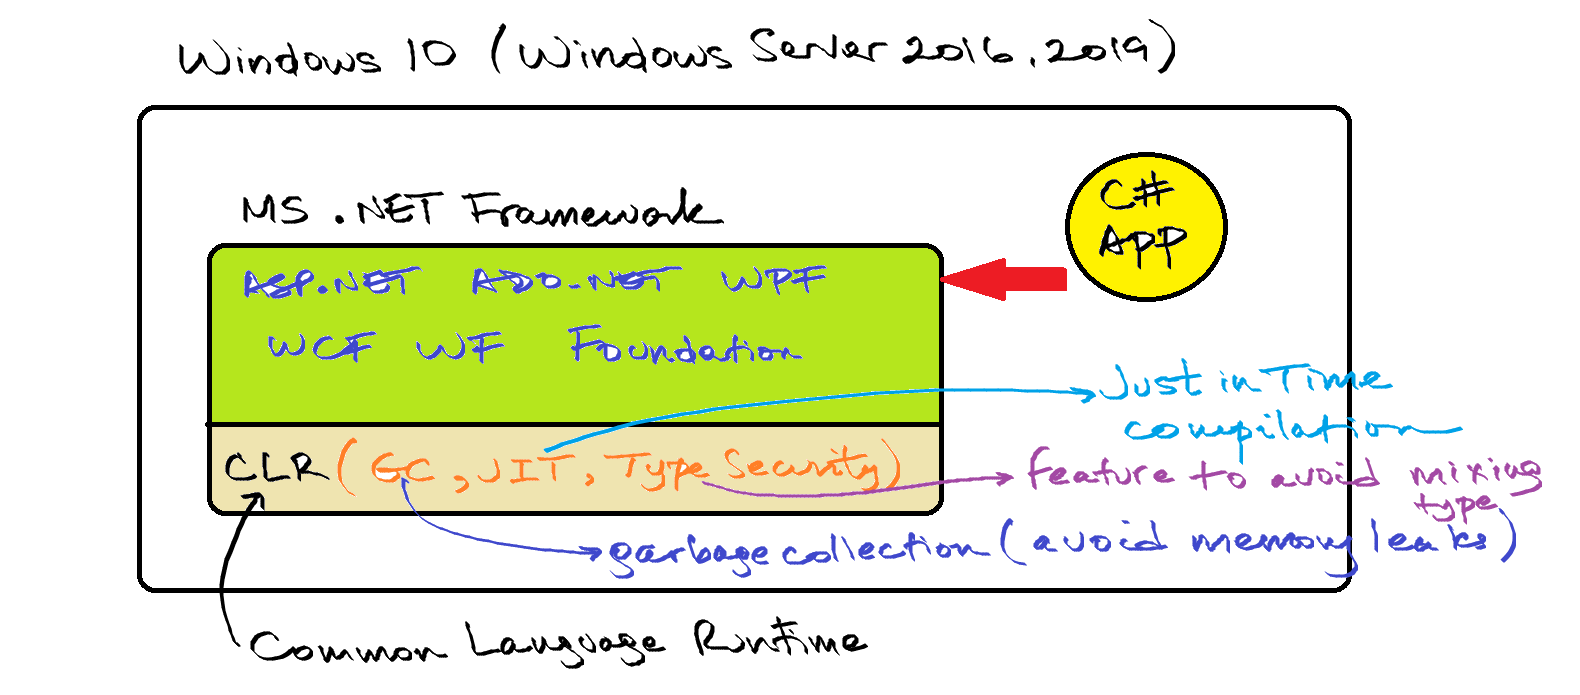 Windows 10 (Windows Server 2016, 2019)
MS .NET Framework
C#
APP
ASP.NET ADO.NET WPF
WCF WF Foundation
Just in Time
compilation
CLR (GC, JIT, Type Security)
feature to avoid mixing
type
garbage collection (avoid memory leaks)
Common Language Runtime